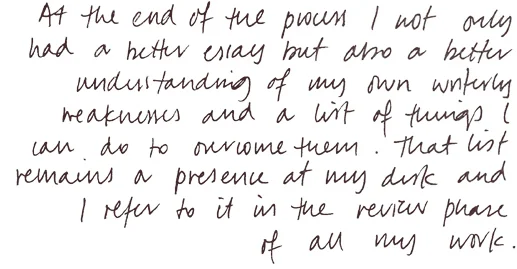 At the end of the process I not only
had a better essay but also a better
understanding of my own writerly
weaknesses and a list of things I
can do to overcome them. That list
remains a presence at my desk and
I refer to it in the review phase
of all my work.